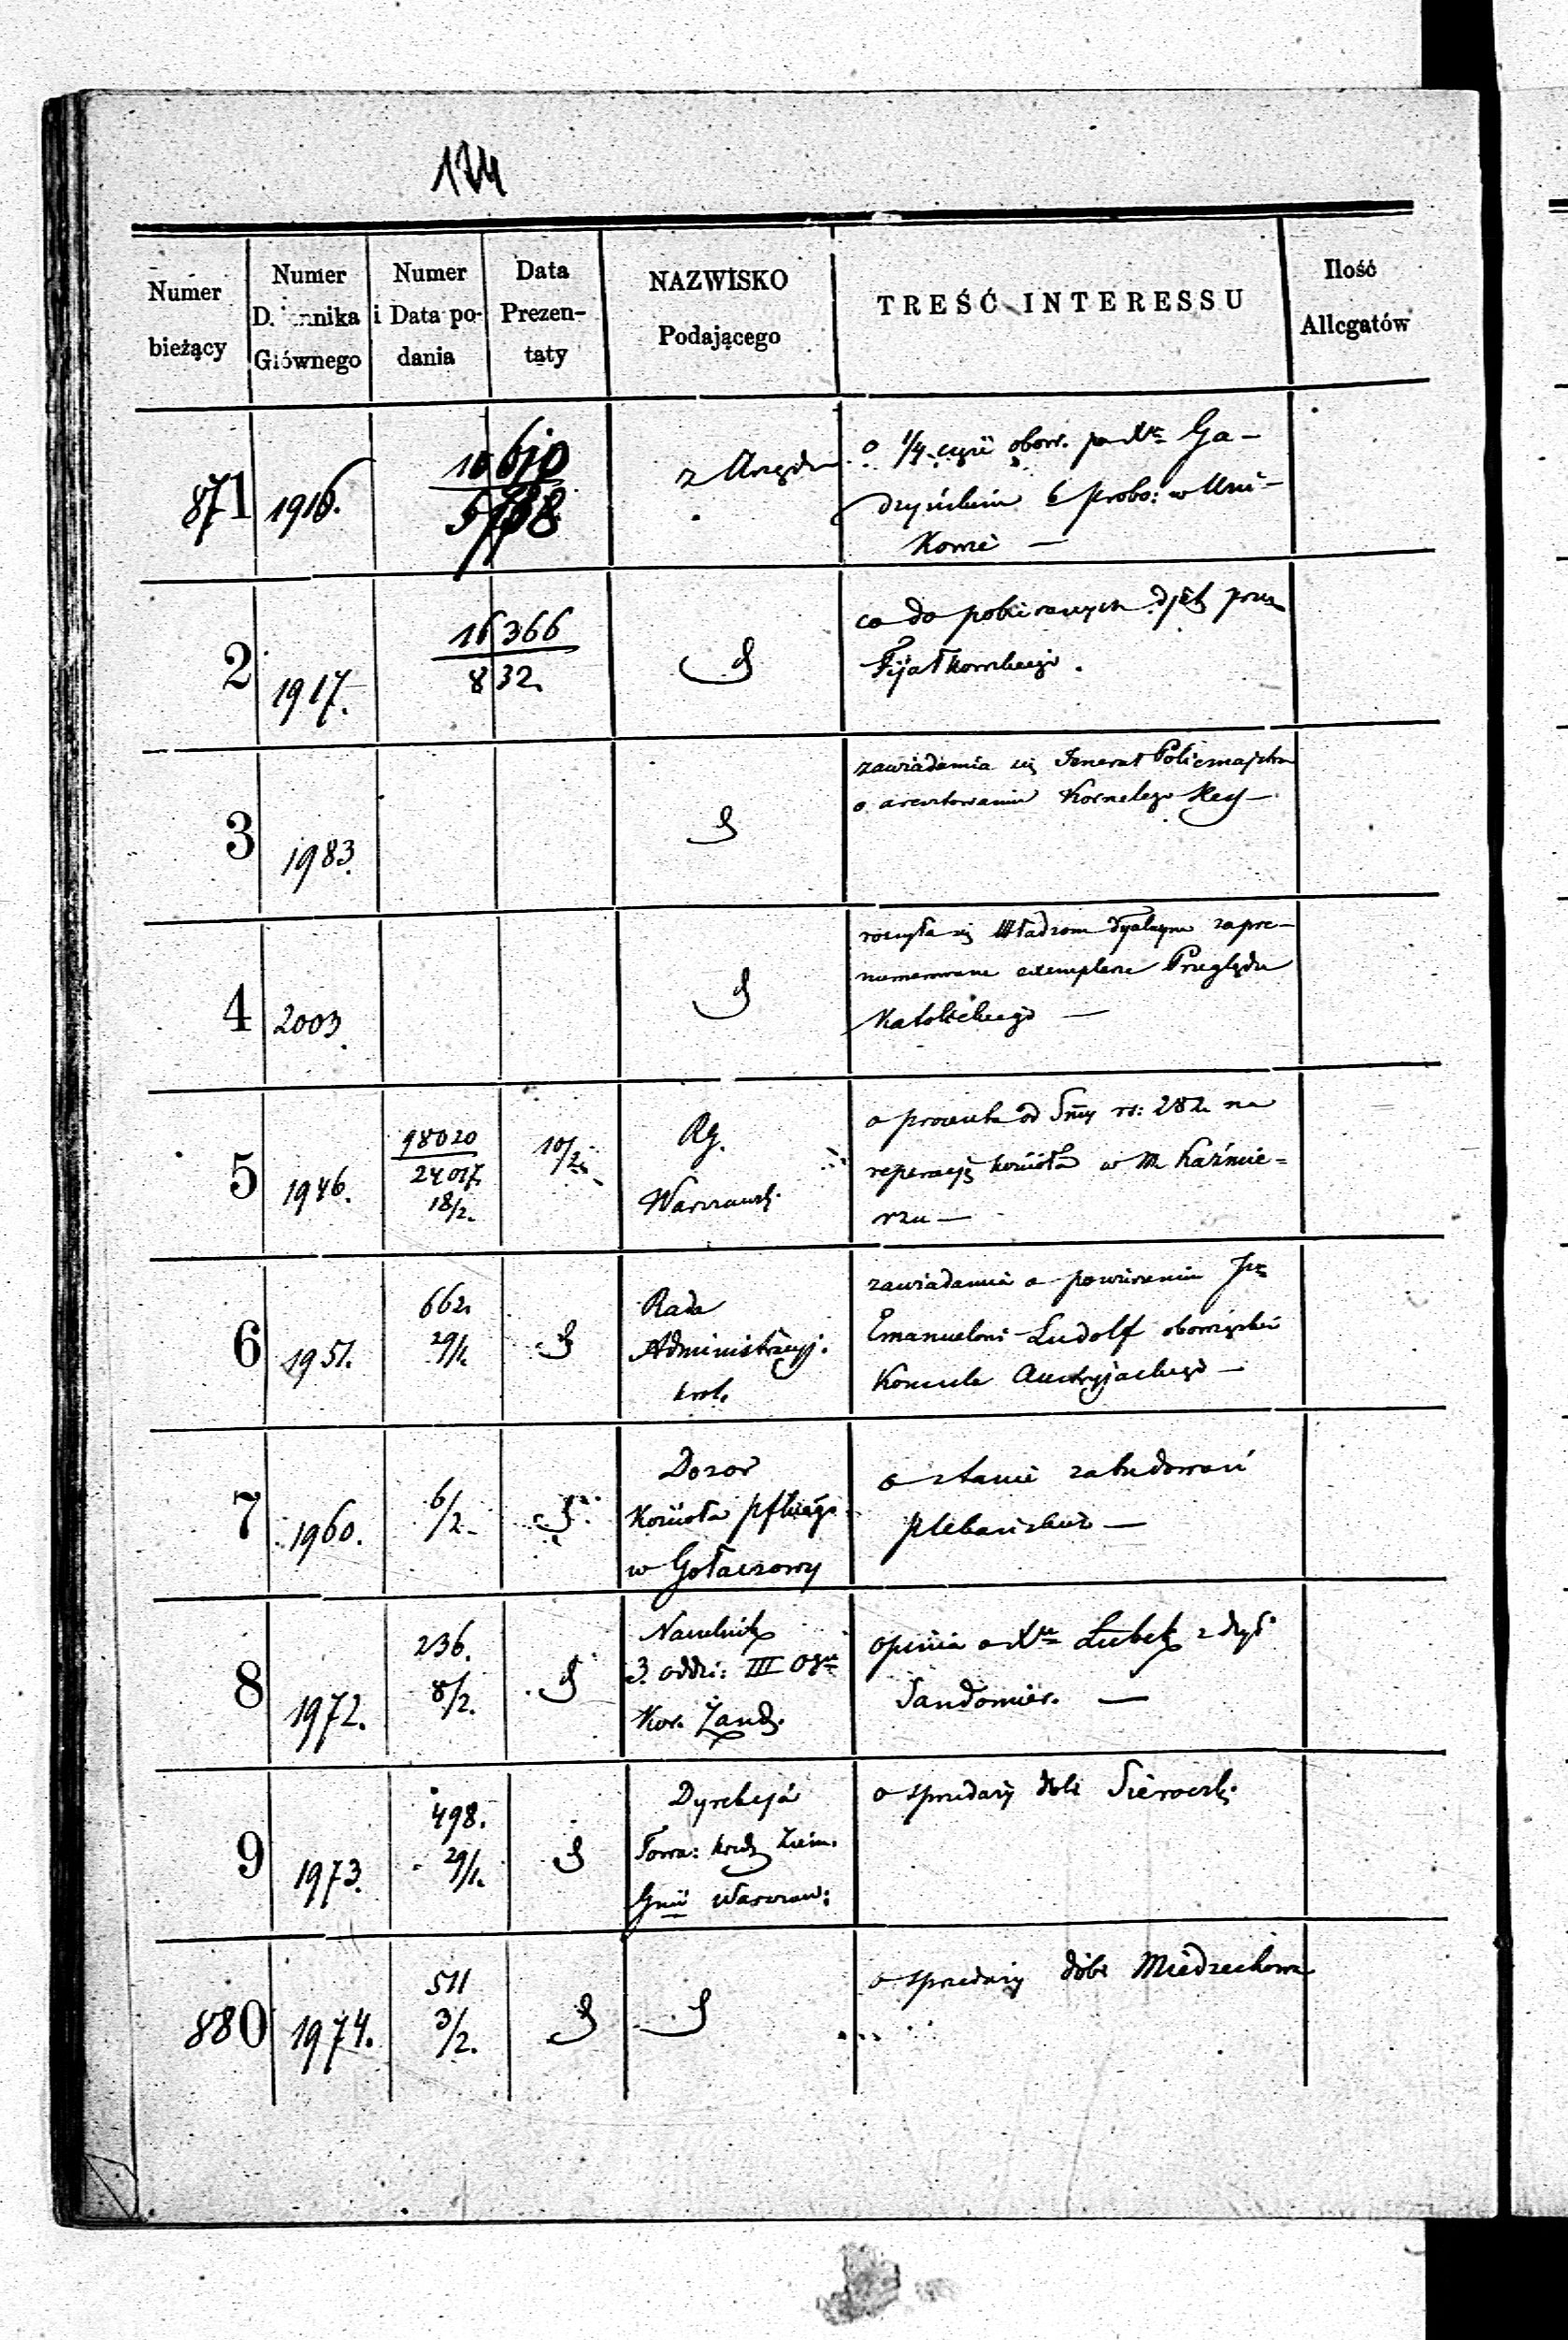 174
Numer bieżący
Numer D. nnika Głównego
Numer i Data podania
Data Prezentaty
NAZWISKO Podającego
TREŚĆ INTERESSU
Ilość Allegatów
871
1916.
z Urzędu
o 1/4 części obow. po Xs Ga-
dzyńskim b probo: w Uni-
kowie —
2
1917.
16366
832.
co do pobieranych dyet przez
Fijałkowskiego.
3
1983.
zawiadamia się Jenerał Policmajstra
o aresztowaniu Kornelego Rey —
4
2003.
rozsyła się Władzom dyalnym zapre-
numerowane exemplarze Przeglądu
Katolickiego —
5
1946.
98020
24017.
18/2.
10/2.
RG.
Warszawsk.
o procenta od Smy rs: 282 na
reperacyę kościoła w m. Kaźmie=
rzu —
6
1951.
662.
29/1.
Rada
Administracyj.
król.
zawiadamia o powierzeniu
Emanuelowi Ludolf obowiązków
Konsula Austryjackiego —
7
1960.
6/2.
Dozór
Kościoła pflnego
w Gołaczowy
o stanie zabudowań
plebańskich —
8
1972.
236.
8/2.
Naczelnik
3. oddz: III Ogu
Kor. Żand.
opinia o Xu Łubek z dyś
Sandomier. —
9
1973.
498.
29/1.
Dyrekcja
Towa: kred Ziem.
Gnii Warszaw:
o sprzedaży dóbr Sierock.
880
1974.
511
3/2.
o sprzedaży dóbr Miedzechowa